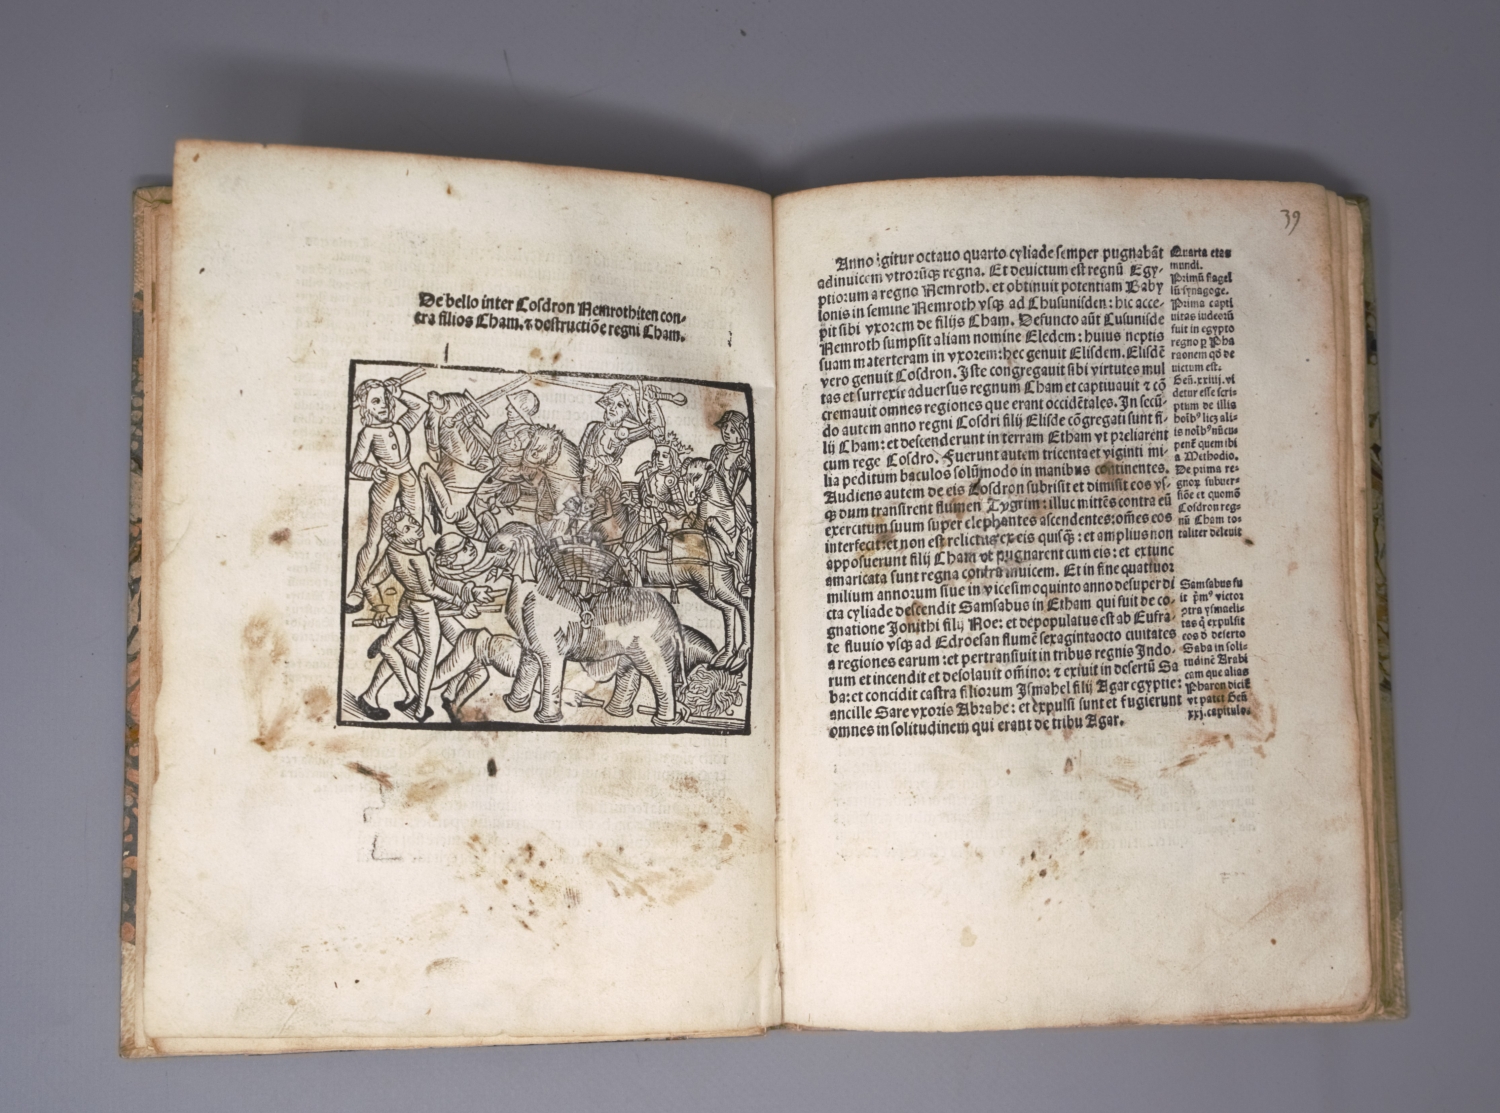 De bello inter Cosdron Nemrothiten con-
tra filios Cham. ⁊ destructiōe regni Cham.
39
Anno igitur octauo quarto cyliade semper pugnabāt
adinuicem vtrorūqꝫ regna. Et deuictum est regnū Egy-
ptiorum a regno Nemroth. et obtinuit potentiam Baby
lonis in semine Nemroth vsqꝫ ad Chusunisden: hic acce-
pit sibi vxorem de filijs Cham. Defuncto aūt Cusunisde
Nemroth sumpsit aliam nomine Eledem: huius neptis
suam materteram in vxorem: hec genuit Elisdem. Elisdē
vero genuit Cosdron. Iste congregauit sibi virtutes mul
tas et surrexit aduersus regnum Cham et captiuauit ⁊ cō
cremauit omnes regiones que erant occidētales. In secū-
do autem anno regni Cosdri filij Elisde cōgregati sunt fi-
lij Cham: et descenderunt in terram Etham vt preliarent
cum rege Cosdro. Fuerunt autem tricenta et viginti mi-
lia peditum baculos solūmodo in manibus continentes.
Audiens autem de eis Cosdron subrisit et dimisit eos vs-
qꝫ dum transirent flumen Tygrim: illuc mittēs contra eū
exercitum suum super elephantes ascendentes: om̄es eos
interfecit: et non est relictus ex eis quisqꝫ: et amplius non
apposuerunt filij Cham vt pugnarent cum eis: et extunc
amaricata sunt regna contra inuicem. Et in fine quattuor
milium annorum siue in vicesimoquinto anno desuper di
cta cyliade descendit Samsabus in Etham qui fuit de co-
gnatione Jonithi filij Noe: et depopulatus est ab Eufra-
te fluuio vsqꝫ ad Edroesan flumē sexagintaocto ciuitates
a regiones earum: et pertransiuit in tribus regnis Indo-
rum et incendit et desolauit om̄ino: ⁊ exiuit in desertū Sa
ba: et concidit castra filiorum Ismahel filij Agar egyptie:
ancille Sare vxoris Abrahe: et expulsi sunt et fugierunt
omnes in solitudinem qui erant de tribu Agar.
Quarta etas
mundi.
Primū flagel
lū synagoge.
Prima capti
uitas iudeorū
fuit in egypto
regno ꝑ Pha
raonem qō de
uictum est.
Geñ. xxiiij. vi
detur esse scri-
ptum de illis
a Methodio.
De prima re-
gnoꝝ subuer-
siōe et quomō
Cosdron reg-
nū Cham to-
taliter deleuit
Samsabus fu
it pm⁹ victor
ꝯtra ysmaeli-
tas q̄ expulsit
eos ī deserto
Saba in soli-
tudinē Arabi
cam que alias
Pharon dicit̄
vt patet Geñ.
xxj. capitulo.